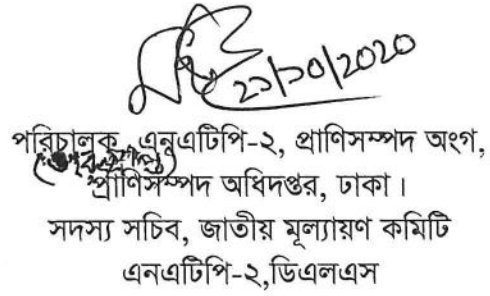 ২১/১০/2020
পরিচালক, এনএটিপি-২, প্রাণিসম্পদ অংগ,
প্রাণিসম্পদ অধিদপ্তর, ঢাকা।
সদস্য সচিব, জাতীয় মূল্যায়ণ কমিটি
এনএটিপি-২,ডিএলএস